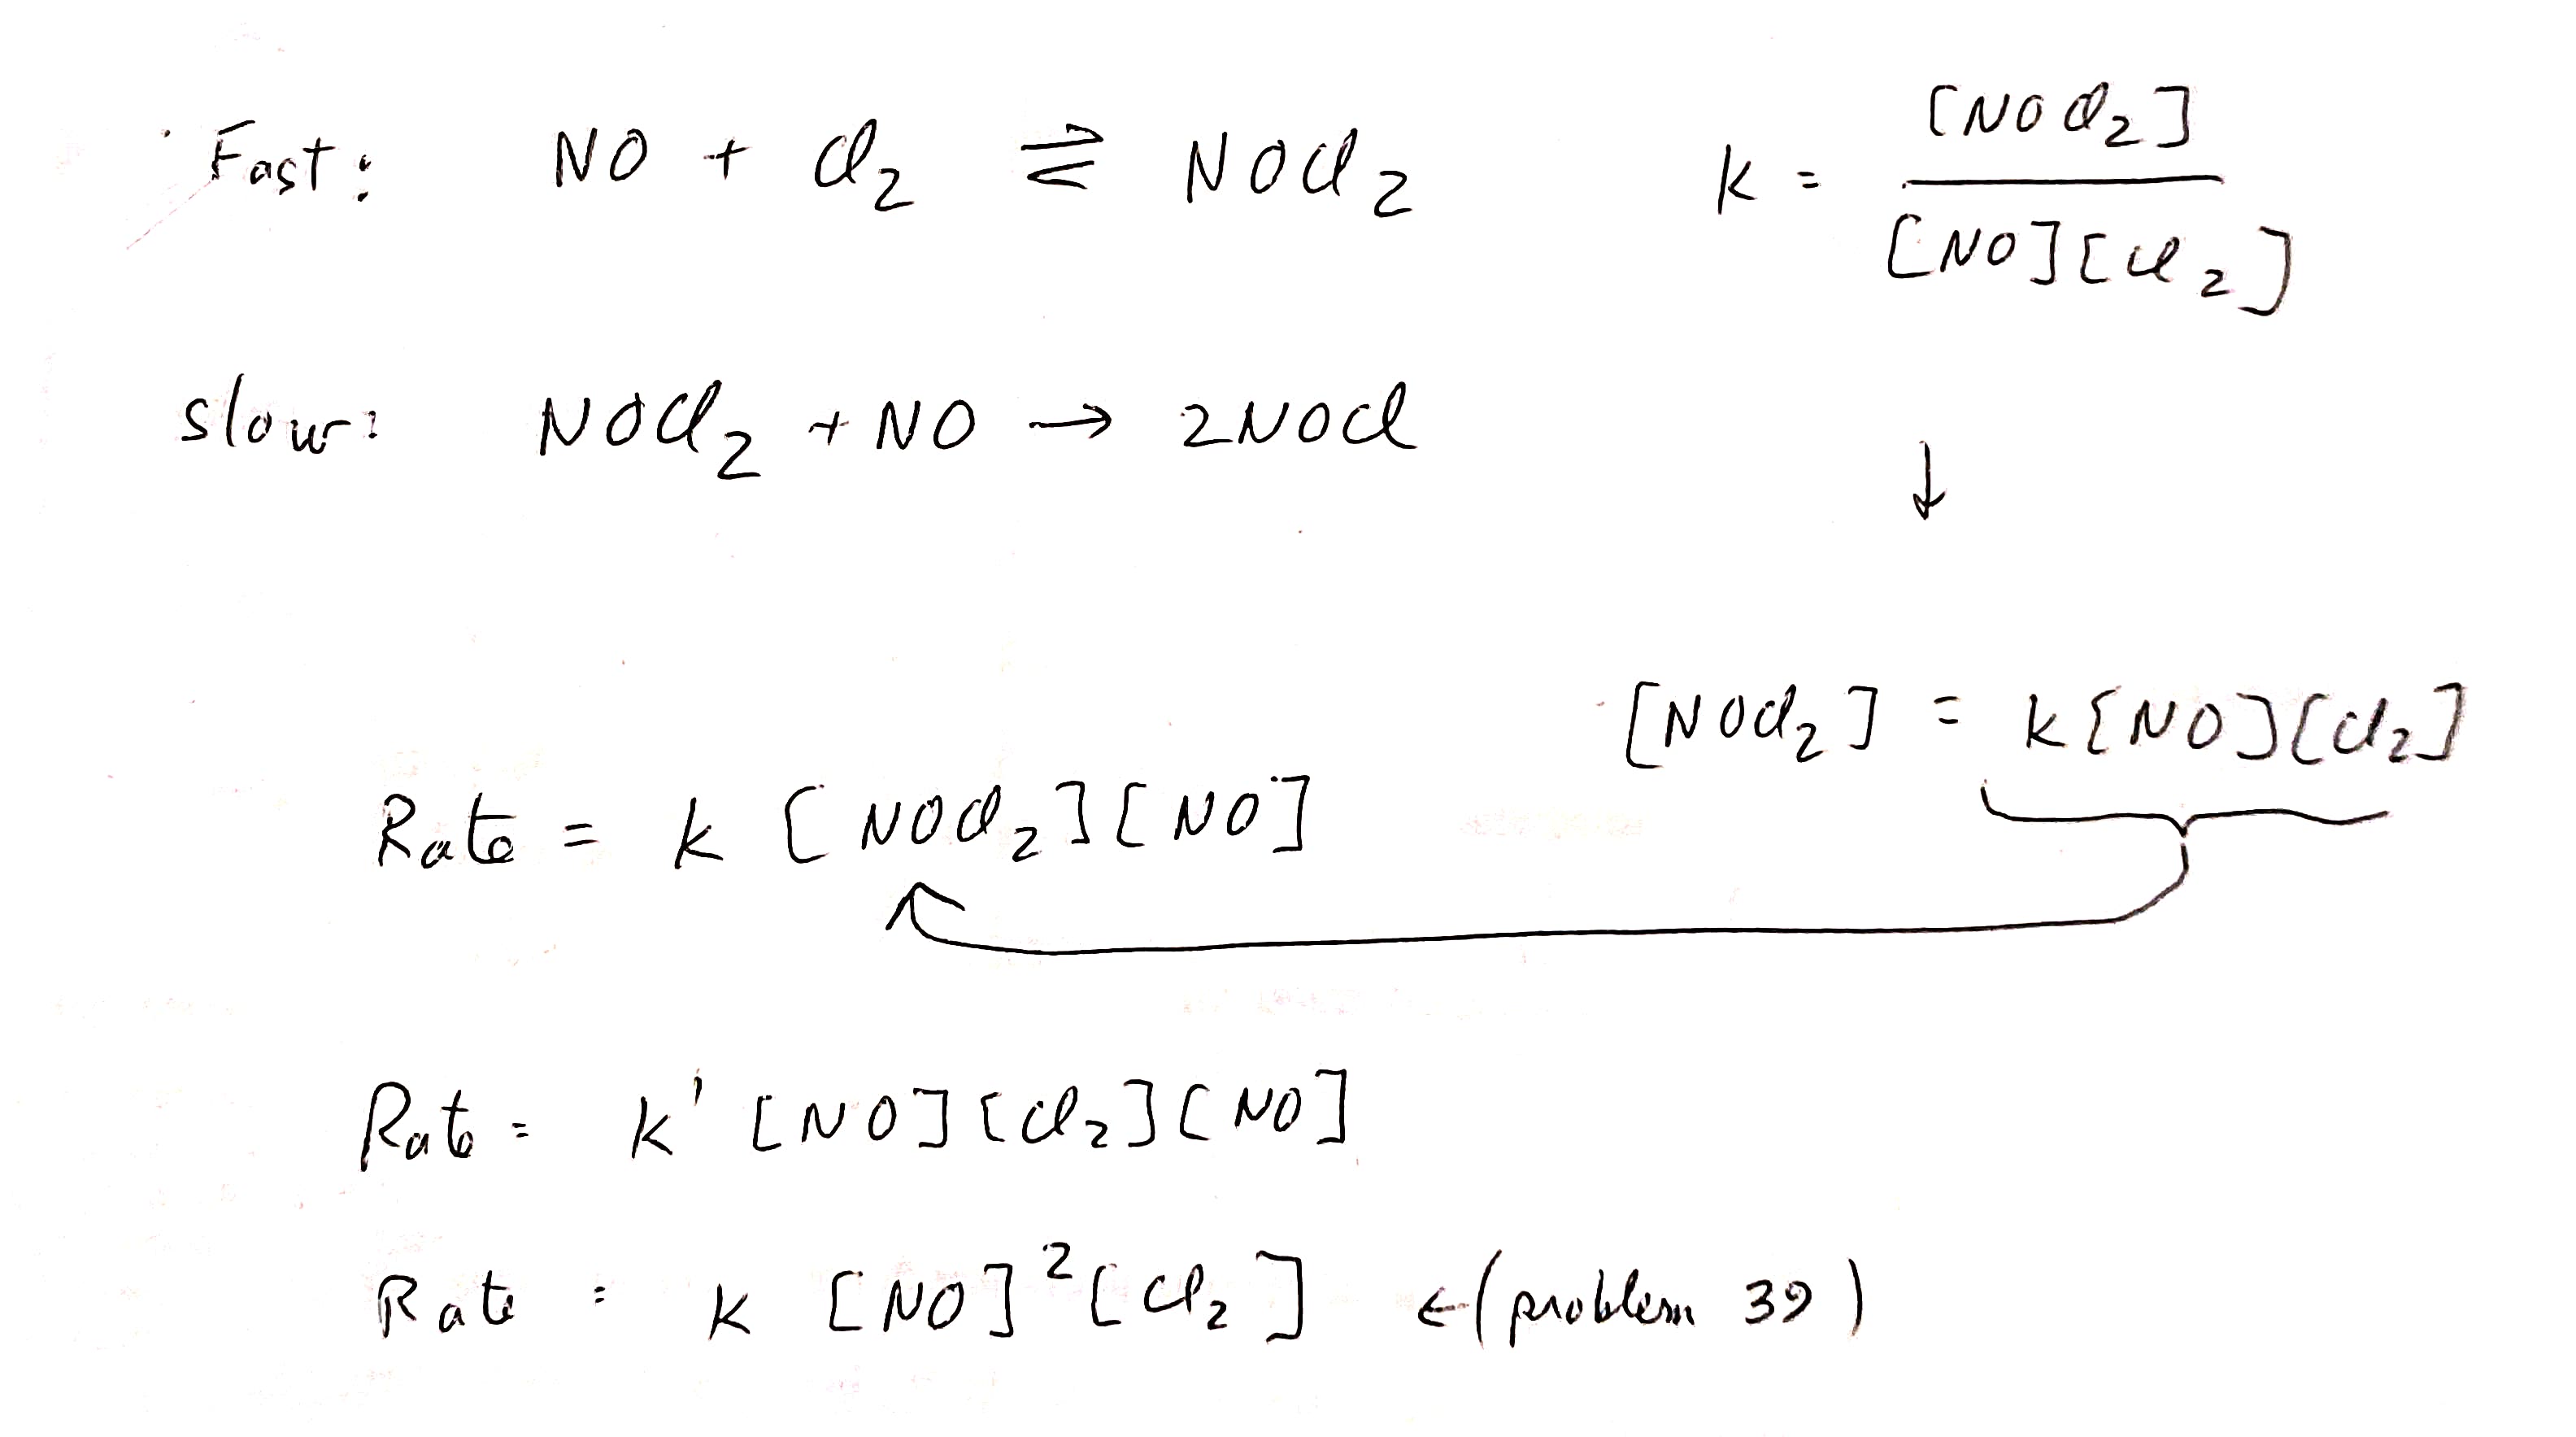 Fast: NO + Cl₂ ⇄ NOCl₂
K = [NOCl₂] / [NO][Cl₂]
slow: NOCl₂ + NO → 2NOCl
↓
[NOCl₂] = K[NO][Cl₂]
Rate = k [NOCl₂][NO]
Rate = k' [NO][Cl₂][NO]
Rate = k [NO]²[Cl₂] ← (problem 39)